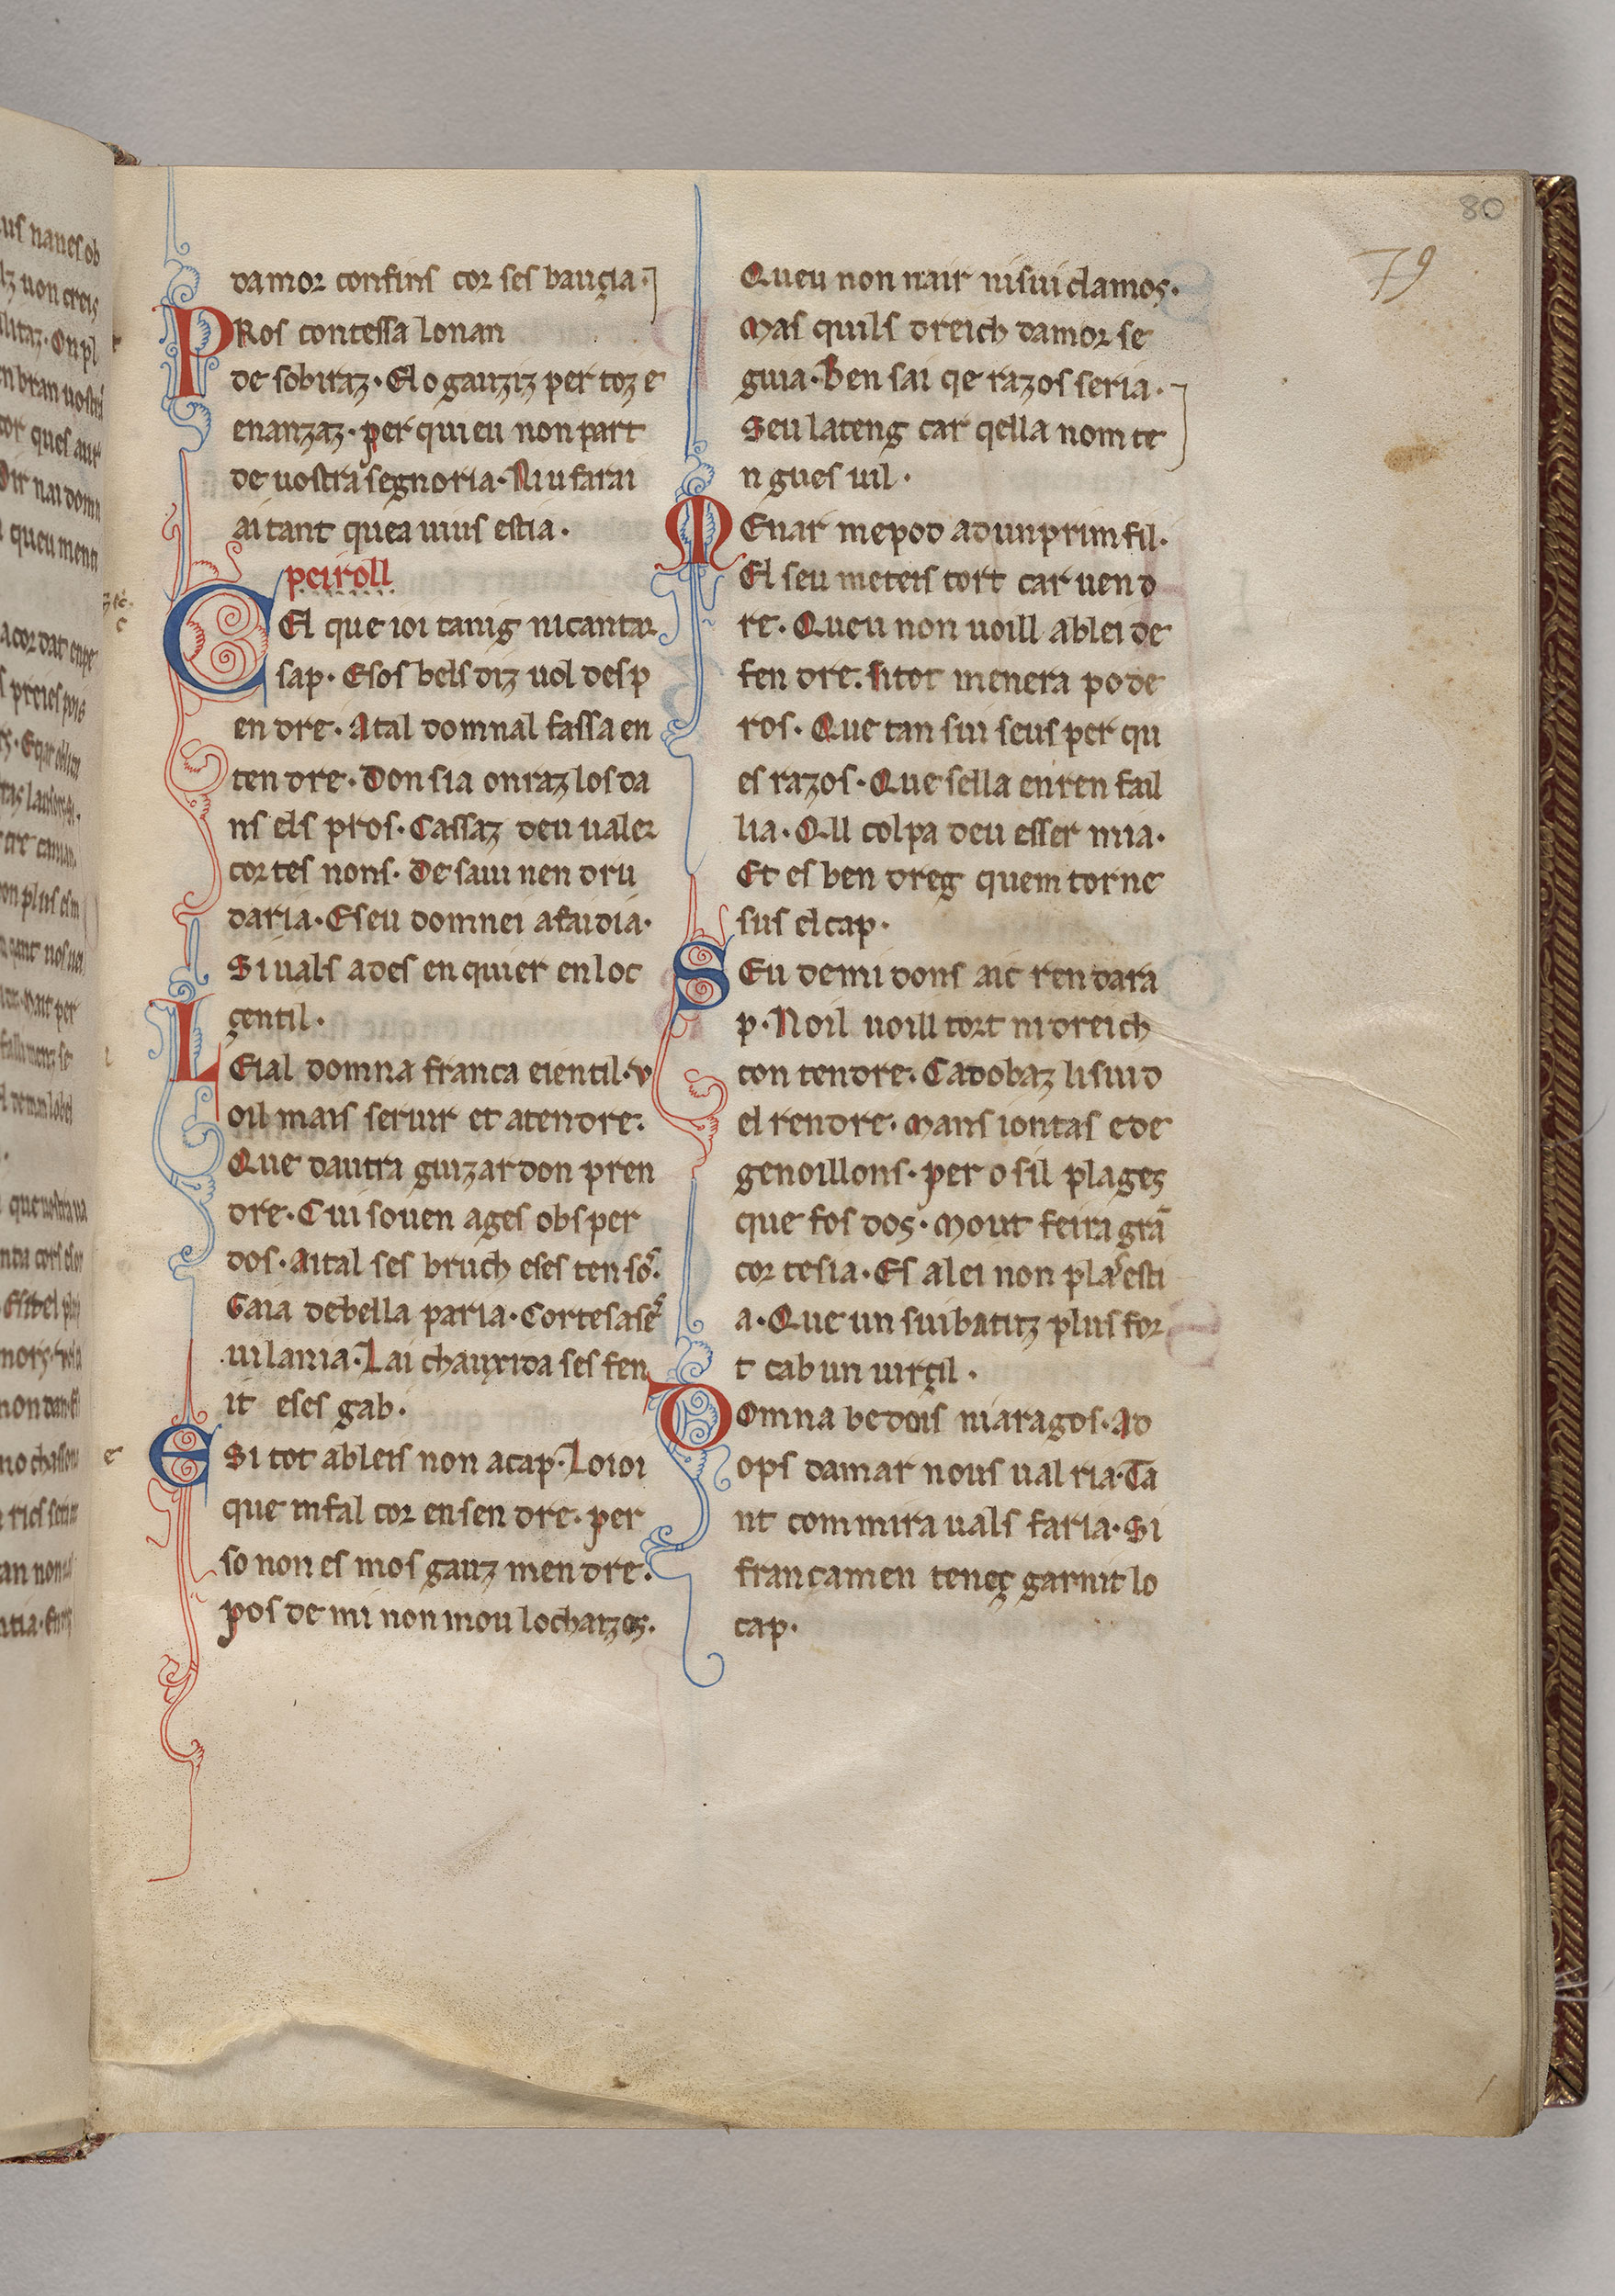 80
79
damor confins cor ses bauçia.
PRos contessa lo nan
de sobiraz. El o gauziz per toz e
enanzaz. per qui eu non part
de uostra segnoria. Ni u farai
aitant quea uius estia.
peiroll
CEl que ioi tanig ni cantar
sap. E sos bels diz uol desp
endre. Atal domnal fassa en
tendre. Don sia onraz los da
ns els pros. Cassaz deu ualer
cortes nons. De saui nen dru
daria. E seu domnei a faidia.
Si uals ades enquier en loc
çentil.
LEial domna franca e ientil. v
oil mais seruir et atendre.
Que dautra guizardon pren
dre. Cui souen ages obs per
dos. Aital ses bruch e ses tenso.
Gaia de bella paria. Cortes a se
uilania. Lai chauxida ses fen
it e ses gab.
ESi tot ableis non acap. Lo ioi
que mfal cor ensendre. per
so non es mos gauz mendre.
pos de mi non mou lo chaizos.
Queu non nair ni sui clamos.
Mas quils dreich damor se
guia. Ben sai qe razos seria.
Seu lateng car qella nom te
ngues uil.
MEnar me pod ad un prim fil.
El seu meteis tort car uend
re. Queu non uoill ab lei de
fendre. si tot menera pode
ros. Que tan sui seus per qu
es razos. Que sella en ren fail
lia. Qll colpa deu esser mia.
Et es ben dreg quem torne
sus el cap.
SEu de mi dons aic ren dara
p. Noil uoill tort ni dreich
contendre. Cadobaz li sui d
el rendre. Mans iontas e de
genoillons. per o sil plages
que fos dos. Mout feira grã
cortesia. Es a lei non pla esti
a. Que un sui batutz plus for
t cab un uirçil.
DOmna bedois ni aragos. Ad
ops damar nous ualria. Ta
nt com mira uals faria. Si
francamen teneç garnit lo
cap.